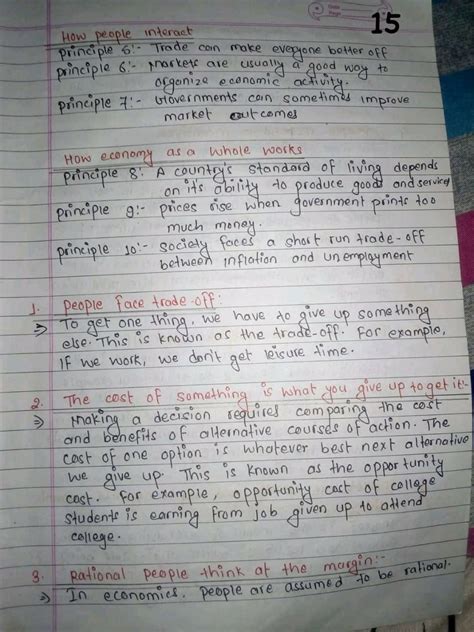 Date
Page
15
How people interact
principle 5:- Trade can make everyone better off
principle 6:- Markets are usually a good way to
organize economic activity.
principle 7:- Governments can sometimes improve
market outcomes
How economy as a whole works
principle 8:- A country's standard of living depends
on its ability to produce good and services
principle 9:- prices rise when government prints too
much money.
principle 10:- society faces a short run trade-off
between inflation and unemployment
1. People face trade-off:
⇒ To get one thing, we have to give up something
else. This is known as the trade-off. For example,
If we work, we don't get leisure time.
2. The cost of something is what you give up to get it:-
⇒ Making a decision requires comparing the cost
and benefits of alternative courses of action. The
cost of one option is whatever best next alternative
we give up. This is known as the opportunity
cost. For example, opportunity cost of college
students is earning from job given up to attend
college.
3. Rational people think at the margin:-
⇒ In economics, people are assumed to be rational.